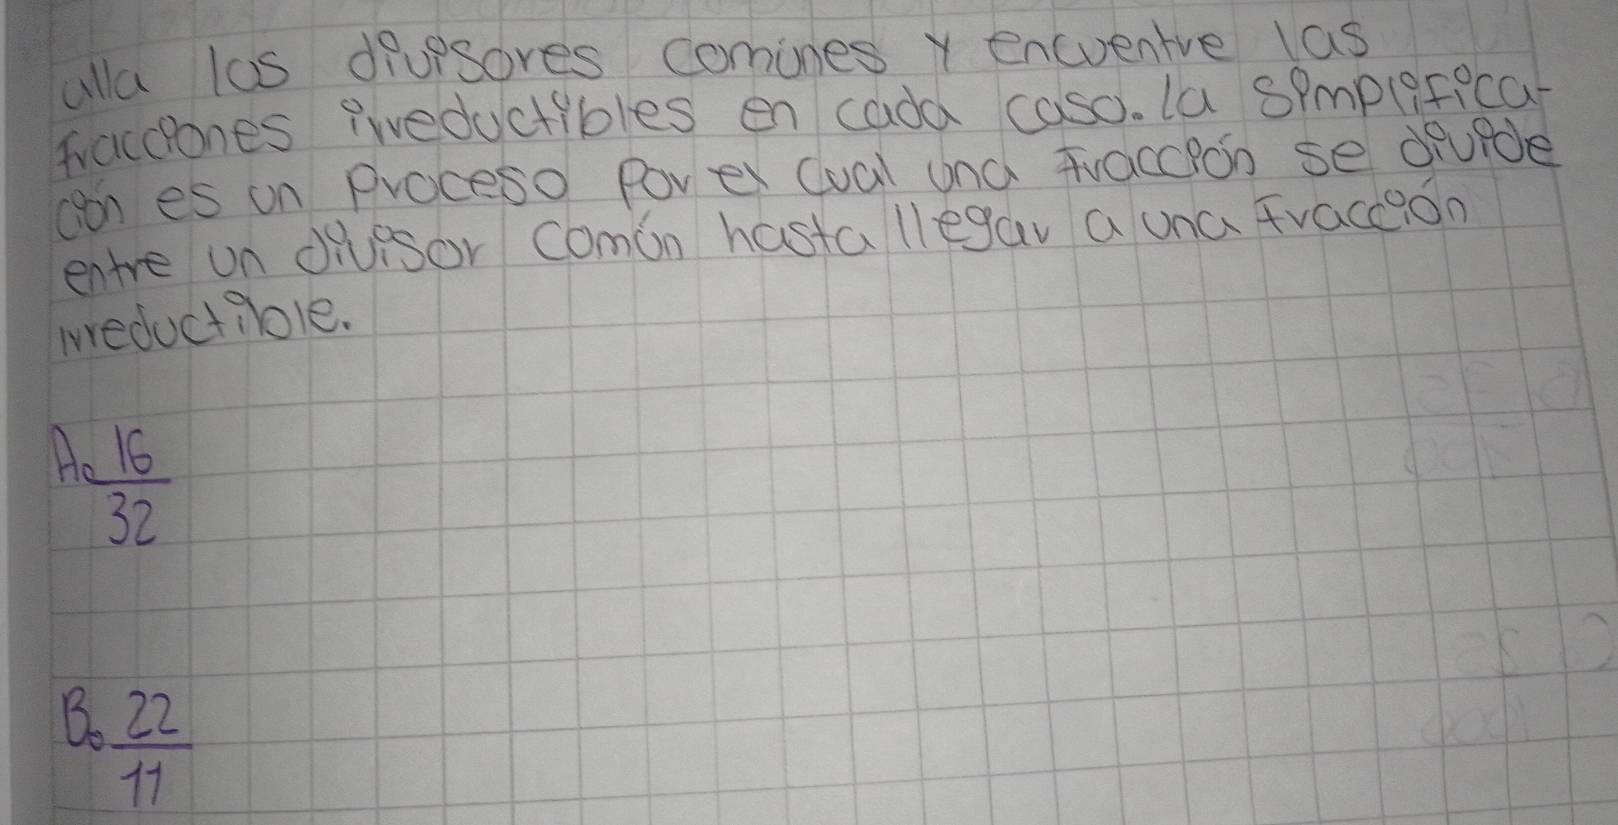 alla los divisores comúnes y encuentre las
fracciones irreductibles en cada caso. la simplifica-
ción es un proceso por el cual una fracción se divide
entre un divisor común hasta llegar a una fracción
irreductible.
A. 16
32
B. 22
11